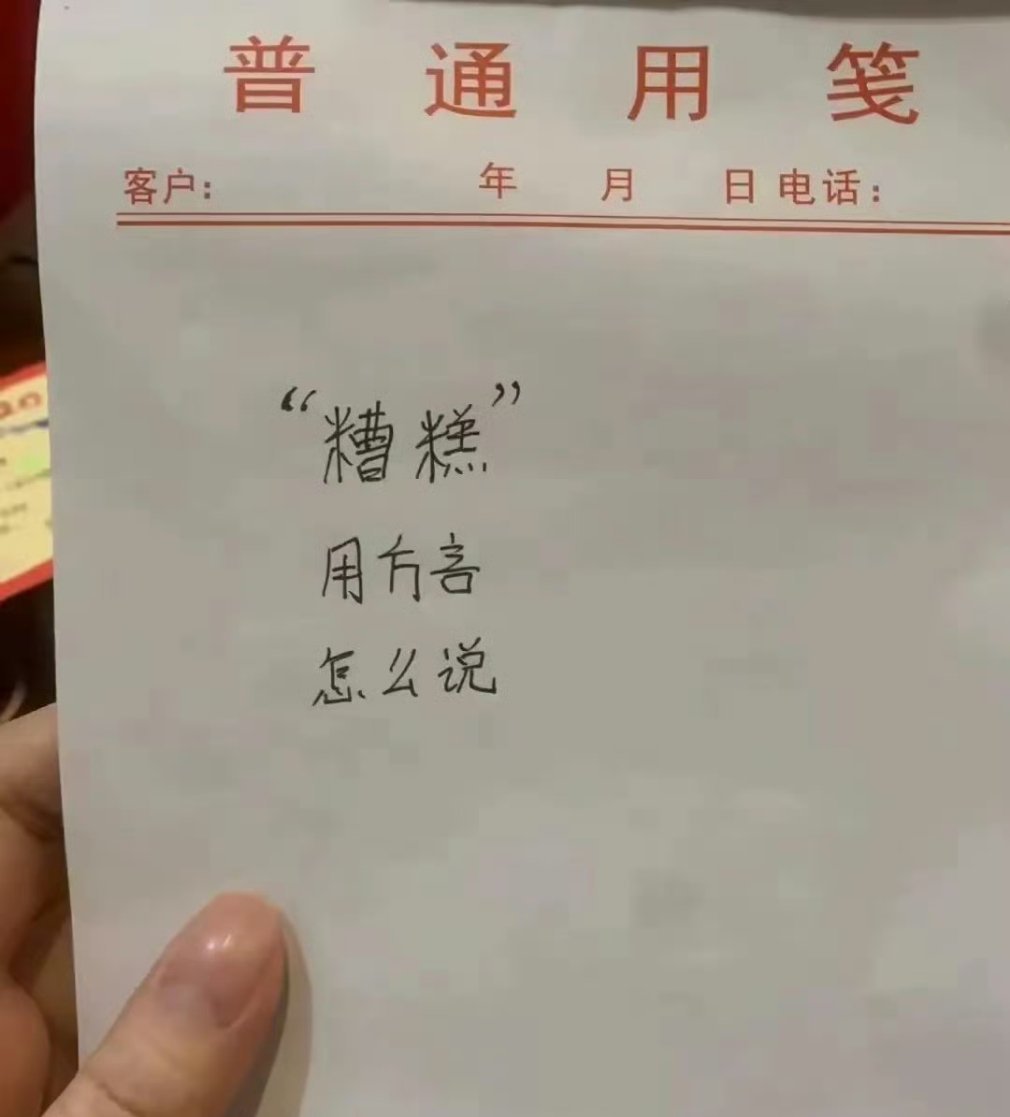 普通用笺
客户： 年 月 日 电话：
“糟糕”
用方言
怎么说